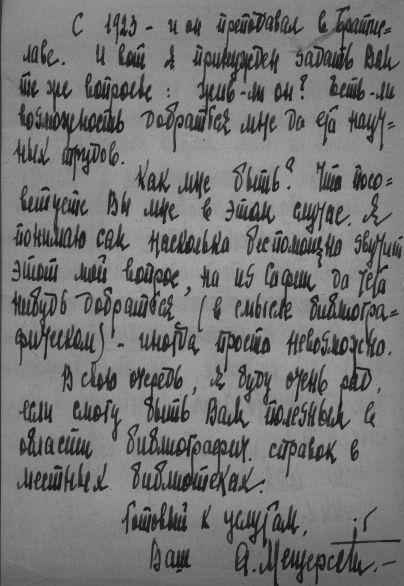 С 1923 - и он преподавал в Братис=
лаве. И вот я принужден задать Вам
те же вопросы: жив-ли он? Есть-ли
возможность добраться мне до его науч=
ных трудов.
Как мне быть? Что посо=
ветуете Вы мне в этом случае. Я
понимаю сам насколько беспомощно звучит
этот мой вопрос, но из Софии до чего
нибудь добраться (в смысле библиогра=
фическом) - иногда просто невозможно.
В свою очередь, я буду очень рад,
если смогу быть Вам полезным в
области библиографич. справок в
местных библиотеках.
Готовый к услугам,
Ваш А. Мещерский.-